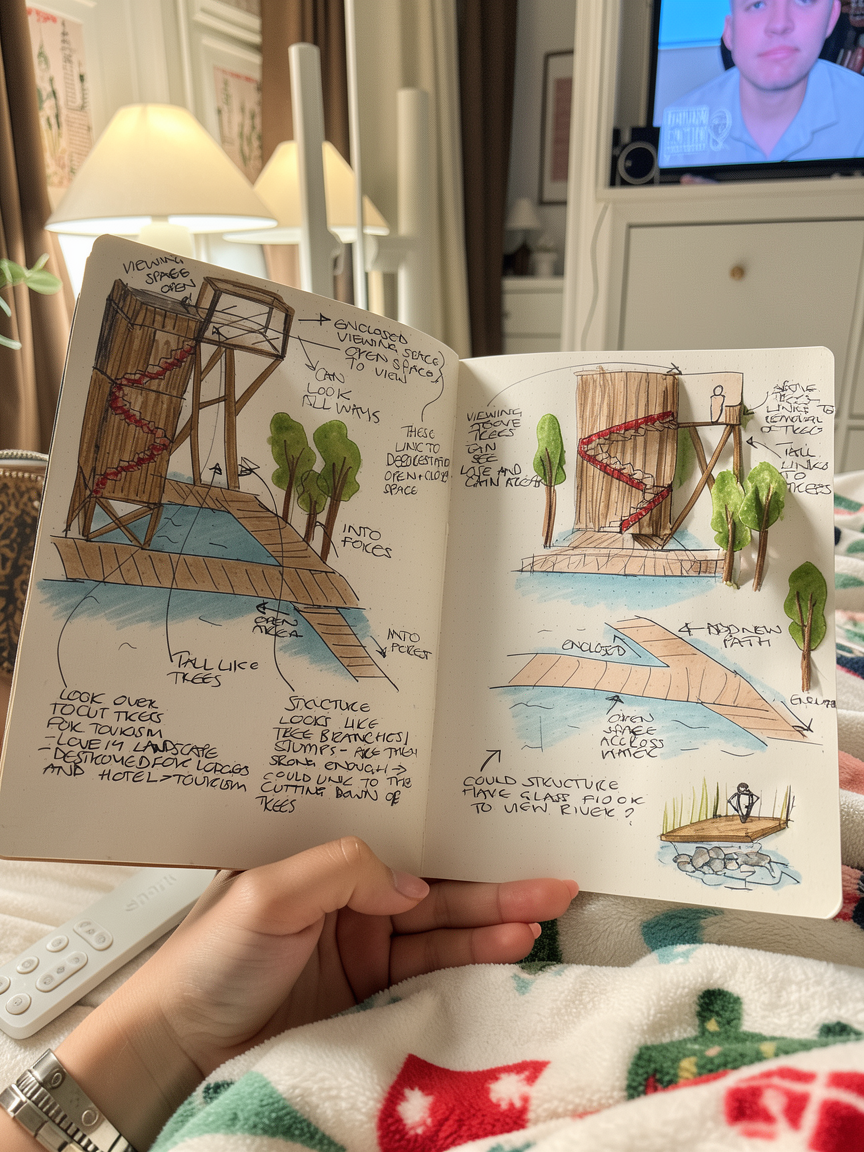 VIEWING
SPACE
OPEN
ENCLOSED
VIEWING SPACE
OPEN SPACE
TO VIEW
CAN
LOOK
ALL WAYS
THESE
LINK TO
OPEN + CLOSE
SPACE
INTO
OPEN
AREA
INTO
FOREST
TALL LIKE
TREES
LOOK OVER
TO CUT TREES
FOR TOURISM
LANDSCAPE
DESTROYED FOR LODGES
AND HOTEL > TOURISM
STRUCTURE
LOOKS LIKE
TREE BRANCHES /
STUMPS - ARE THEY
STRONG ENOUGH →
COULD LINK TO THE
CUTTING DOWN OF
TREES
VIEWING
ABOVE
TREES
CAN
SEE
LOSE AND
GAIN
TREES
LINKS TO
OF TREES
TALL
LINKS
TO TREES
ENCLOSED
ADD NEW
PATH
OPEN
SPACE
ACCROSS
COULD STRUCTURE
HAVE GLASS FLOOR
TO VIEW RIVER?